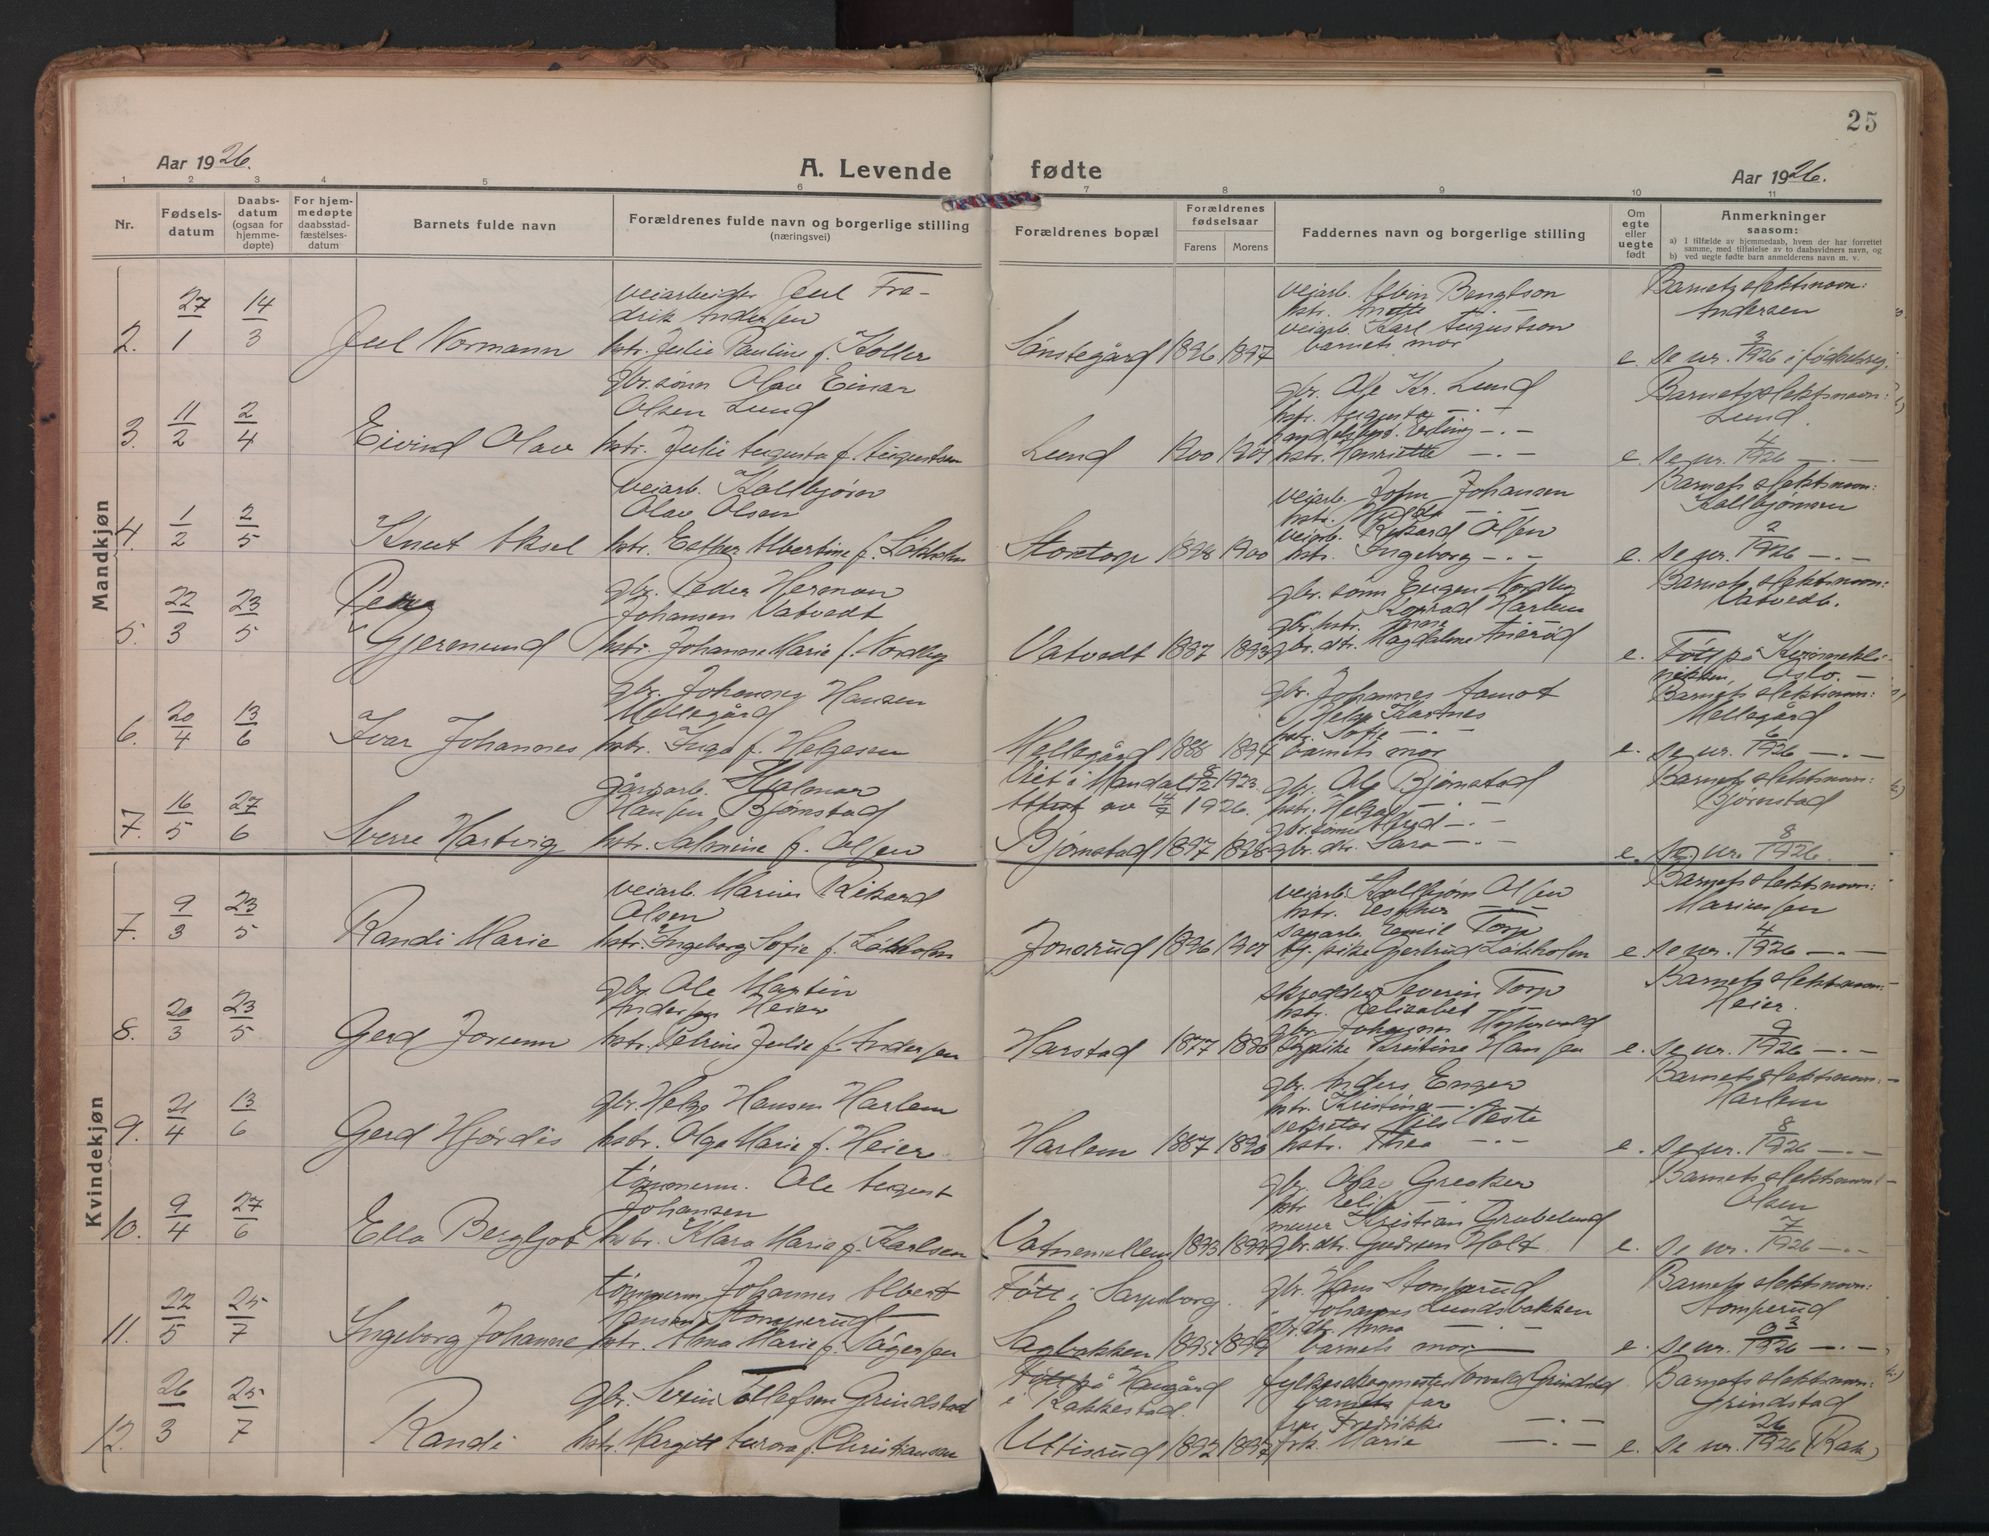 25
Aar 1926.
A. Levende fødte
Aar 1926.
1 2 3 4 5 6 7 8 9 10 11
Nr.
Fødsels-
datum
Daabs-
datum
(ogsaa for
hjemme-
døpte)
For hjem-
medøpte
daabsstad-
fæstelses-
datum
Barnets fulde navn
Forældrenes fulde navn og borgerlige stilling
(næringsvei)
Forældrenes bopæl
Forældrenes
fødselsaar
Farens Morens
Faddernes navn og borgerlige stilling
Om
egte
eller
uegte
født
Anmerkninger
saasom:
a) I tilfælde av hjemmedaab, hvem der har forrettet
samme, med tilføielse av to daabsvidners navn, og
b) ved uegte fødte barn anmelderens navn m. v.
Mandkjøn
veiarbeider Juul Fre-
drik Andersen
2. 27/1 14/3 Juul Normann hstr. Julie Pauline f. Koller
1896 1897
veiarb. Albin Bengtson
hstr. Anette -.-
veiarb. Karl Augustson
barnets mor
e.
Barnets slektsnavn:
Andersen
se nr. 3/1926 i fødselsreg.
gbr.sønn Olav Einar
Olsen Lund
3. 11/2 2/4 Eivind Olav hstr. Julie Augusta f. Augustsen
Lund 1900 1901
gbr. Ole Kr. Lund
hstr. Augusta -.-
handelsbest. Erling -.-
hstr. Henriette -.-
e.
Barnets slektsnavn:
Lund.
se nr. 4/1926 -.-
veiarb. Kolbjørn
Olav Olsen
4. 1/2 2/5 Knut Aksel hstr. Esther Albertine f. Løkholm
Storetorp 1898 1900
veiarb. John Johansen
hstr. Hulda -.-
veiarb. Rikard Olsen
hstr. Ingeborg -.-
e.
Barnets slektsnavn:
Kolbjørnsen
se nr. 2/1926 -.-
gbr. Peder Herman
Johansen Vatvedt
5. 22/3 23/5 Gjermund hstr. Johanne Marie f. Nordby
Vatvedt 1887 1893
gbr. sønn Eugen Nordby
Konrad Harlem
gbr.hstr. Anna
gbr. dtr. Magdalene
e.
Barnets slektsnavn:
Vatvedt.
Født på Kvinnekli-
nikken, Oslo.
gbr. Johannes Hansen
Mellegård
6. 20/4 13/6 Ivar Johannes hstr. Inga f. Helgesen
Mellegård 1888 1894
gbr. Johannes Aamot
" Helge Kasnes
hstr. Sofie -.-
barnets mor
e.
Barnets slektsnavn:
Mellegård
se nr. 6/1926 -.-
gårdarb. Hjalmar
Hansen Bjørnstad
7. 16/5 27/6 Sverre Hartvig hstr. Salmine f. Olsen
Viet i Mandal 8/12 1923.
Attest av 14/7 1926.
Bjørnstad 1897 1898
gbr. Ole Bjørnstad
hstr. Helga -.-
gbr.sønn Alfred -.-
gbr. dtr. Sara -.-
e.
Barnets slektsnavn:
Bjørnstad
se nr. 8/1926.
Kvindekjøn
veiarb. Marius Rikard
Olsen
7. 9/3 23/5 Randi Marie hstr. Ingeborg Sofie f. Løkholm
Jonsrud 1896 1901
veiarb. Kolbjørn Olsen
hstr. Esther -.-
sagarb. Emil Torp
tj. pike Gjertrud Løkholm
e.
Barnets slektsnavn:
Mariussen
se nr. 4/1926 -.-
gbr. Ole Martin
Andersen Heier
8. 20/3 23/5 Gerd Jorunn hstr. Petrine Julie f. Andersen
Harstad 1877 1886
skredder Severin Torp
hstr. Elisabet -.-
gbr. Johannes
pike Kristine Hansen
e.
Barnets slektsnavn:
Heier.
se nr. 9/1926 -.-
gbr. Helge Hansen Harlem
9. 21/4 13/6 Gerd Hjørdis hstr. Olga Marie f. Heier
Harlem 1887 1890
gbr. Anders Enger
hstr. Kristine -.-
sekretær Nils Neste
hstr. Thea -.-
e.
Barnets slektsnavn:
Harlem
se nr. 8/1926 -.-
tømmerm. Ole August
Johansen
10. 9/4 27/6 Ella Bergljot hstr. Klara Marie f. Karlsen
Vatnemellem 1893 1894
gbr. Olav Greaker
hstr. Elise -.-
murer Kristian Grubelund
gbr.dtr. Gudrun Holt.
e.
Barnets slektsnavn:
Olsen
se nr. 7/1926 -.-
tømmerm. Johannes Albert
Hansen Stomperud
11. 22/5 25/7 Ingeborg Johanne hstr. Alma Marie f. Tøgersen
Født i Sarpsborg.
Sagbakken 1895 1899
gbr. Hans Stomperud
" Johannes Lundsbakken
gbr.dtr. Anna -.-
barnets mor
e.
Barnets slektsnavn:
Stomperud
se nr. 93/1926 -.-
gbr. Severin Tollefsen Grindstad
12. 26/3 25/7 Randi hstr. Margitt Aurora f. Christiansen
Født på Haugård
i Rakkestad.
Ultisrud 1892 1897
fylkesskogmester Torvald Grindstad
barnets far
fru Fredrikke -.-
frk. Marie -.-
e.
Barnets slektsnavn:
Grindstad
se nr. 26/1926 (Rak.)